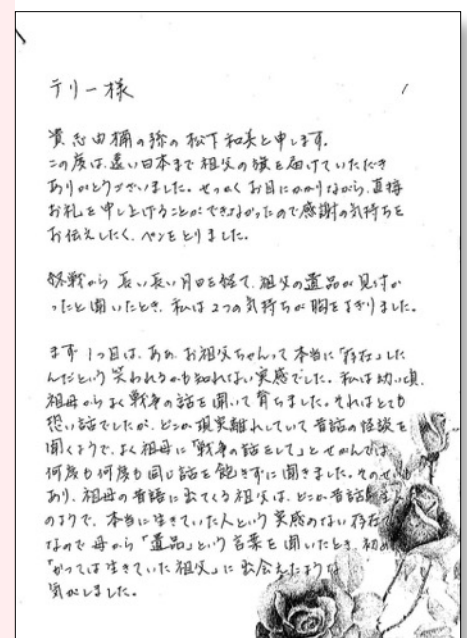 テリー様 1
貴志由楠の孫の松下和美と申します。
この度は、遠い日本まで祖父の旗を届けていただき
ありがとうございました。せっかくお目にかかりながら、直接
お礼を申し上げることができなかったので感謝の気持ちを
お伝えしたく、ペンをとりました。
終戦から長い長い月日を経て、祖父の遺品が見つか
ったと聞いたとき、私は2つの気持ちが胸をよぎりました。
まず1つ目は、ああ、お祖父ちゃんって本当に「存在」した
んだという笑われるかも知れない実感でした。私は幼い頃、
祖母からよく戦争の話を聞いて育ちました。それはとても
恐い話でしたが、どこか現実離れしていて昔話の怪談を
聞くようで、よく祖母に「戦争の話をして」とせがんでは
何度も何度も同じ話を飽きずに聞きました。そのせいも
あり、祖母の昔語に出てくる祖父は、どこか昔話の
のようで、本当に生きていた人という実感のない存在
なので母から「遺品」という言葉を聞いたとき、初め
「かつては生きていた祖父」に出会えたような
気がしました。